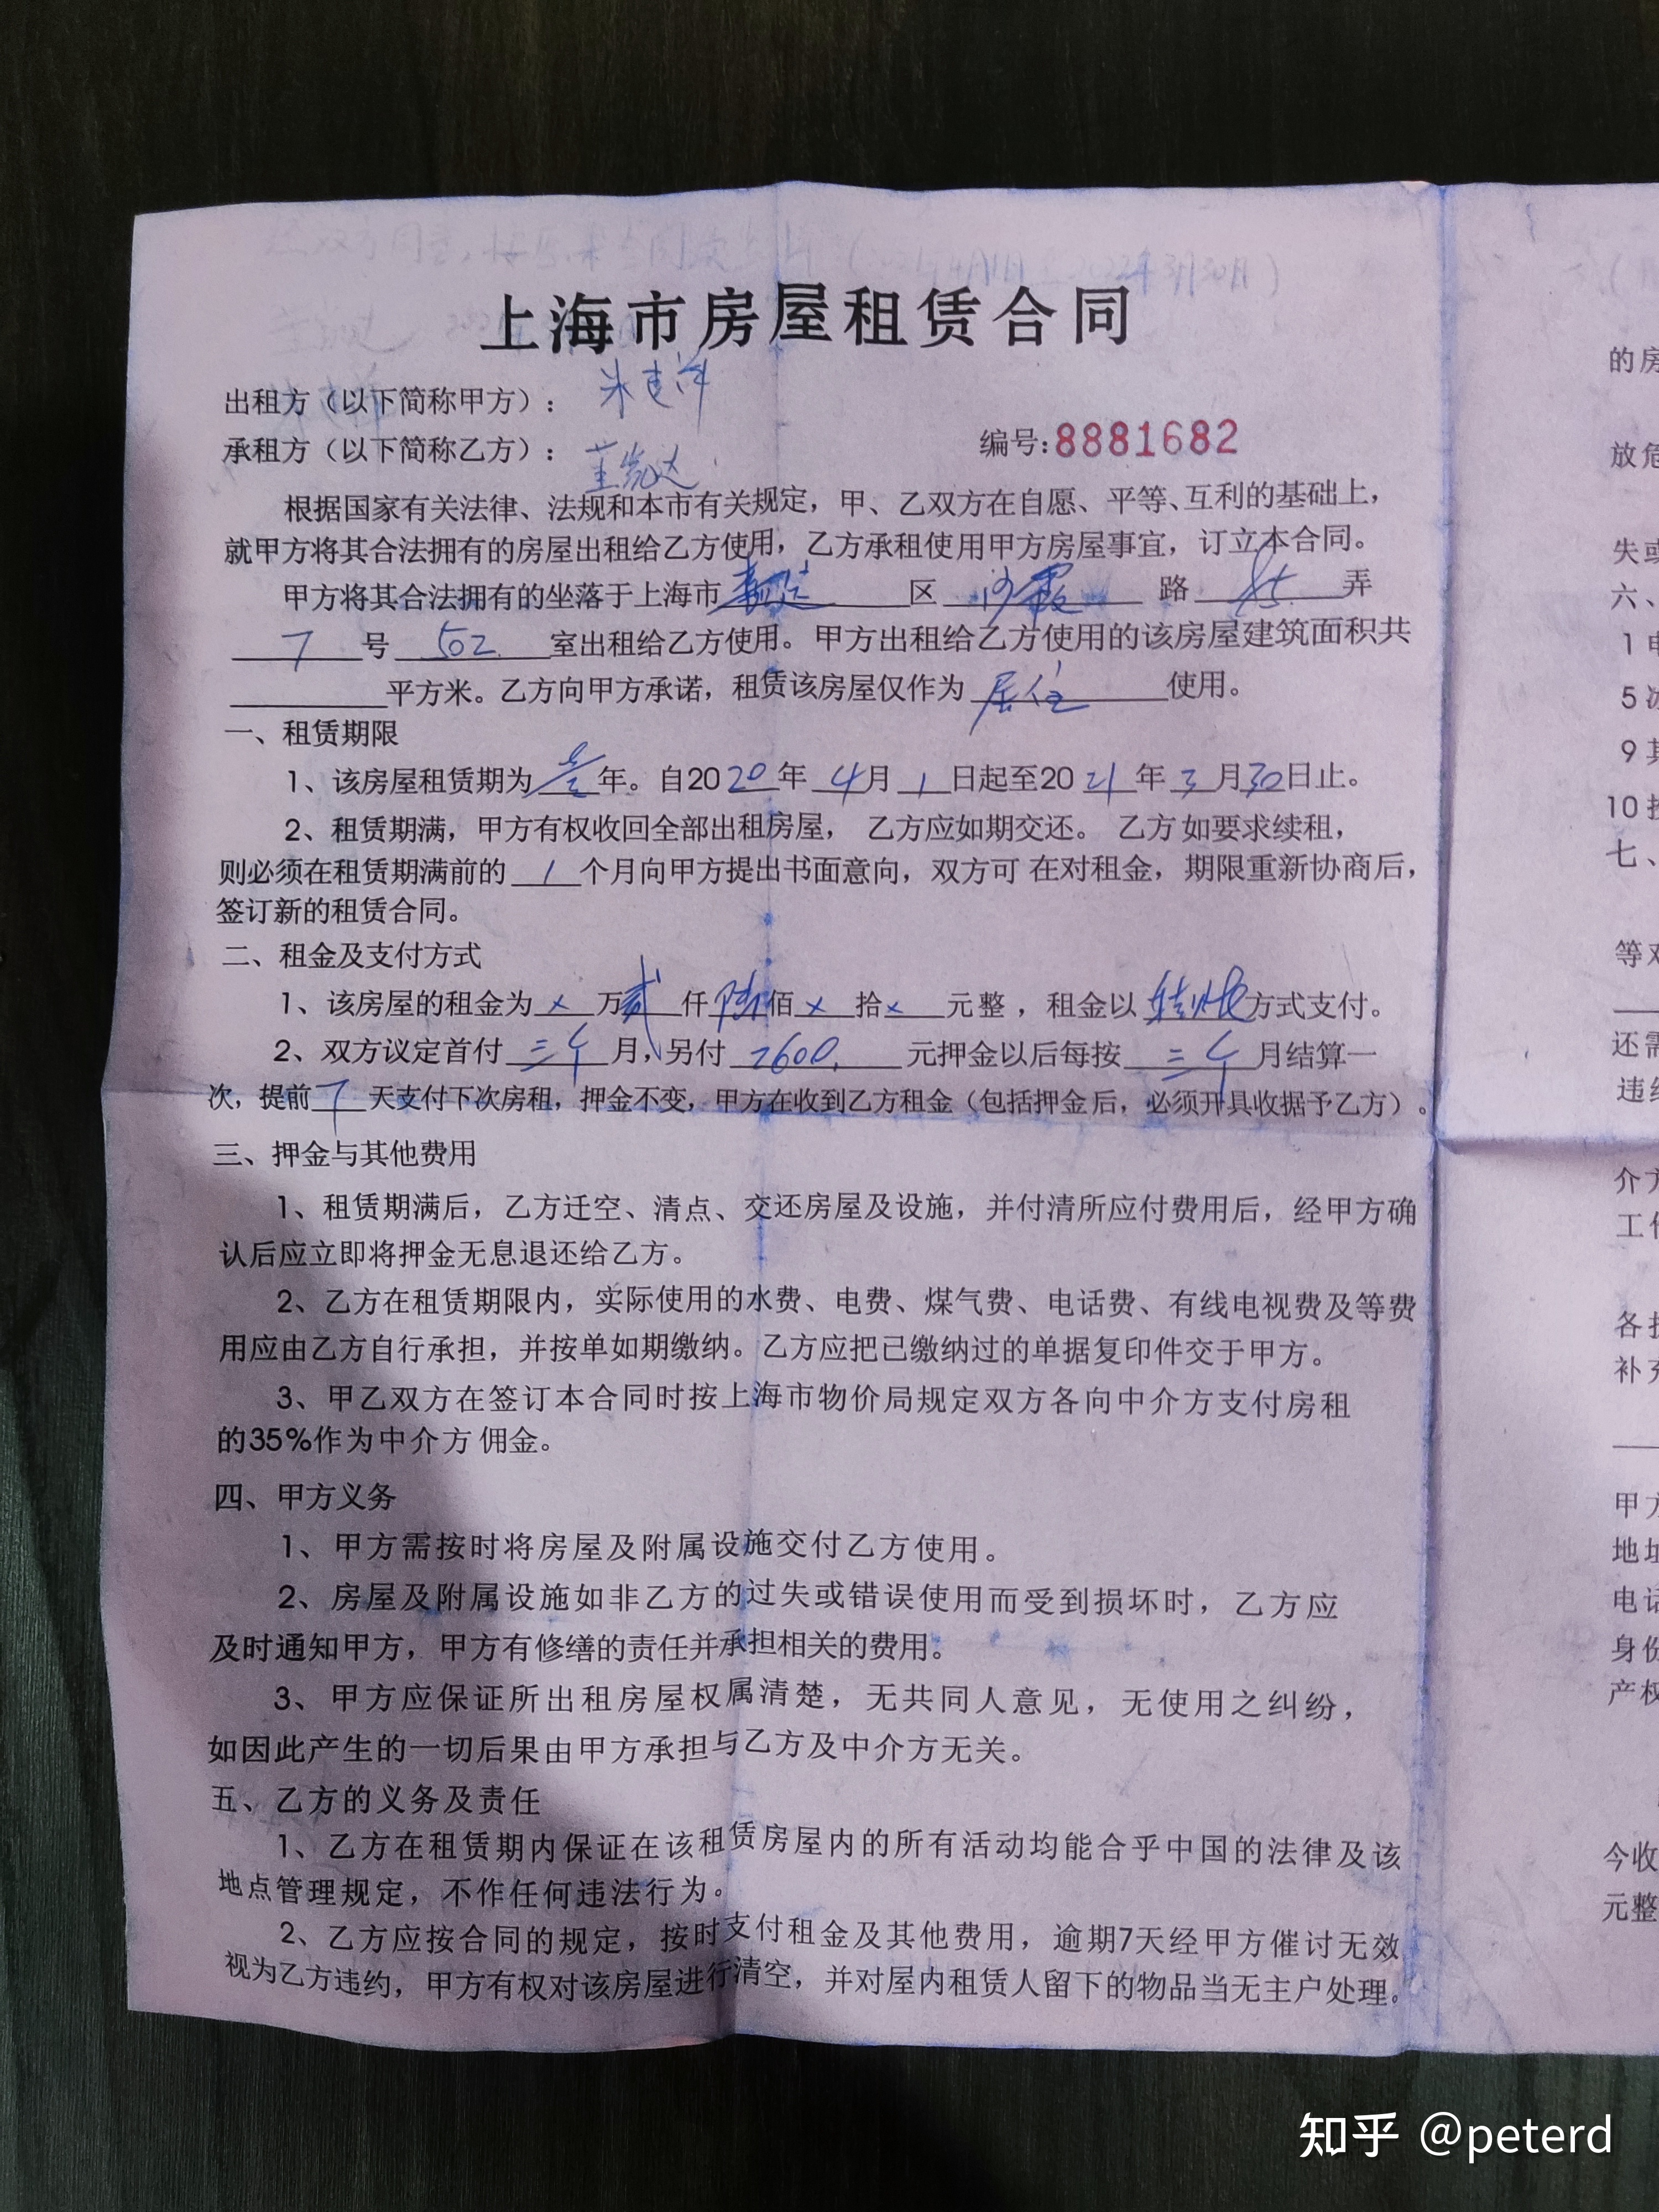 经双方同意,
2022年3月30日)
上海市房屋租赁合同
出租方（以下简称甲方）：
承租方（以下简称乙方）：
编号:8881682
根据国家有关法律、法规和本市有关规定，甲、乙双方在自愿、平等、互利的基础上，
就甲方将其合法拥有的房屋出租给乙方使用，乙方承租使用甲方房屋事宜，订立本合同。
甲方将其合法拥有的坐落于上海市 区 路 85 弄
7 号 502 室出租给乙方使用。甲方出租给乙方使用的该房屋建筑面积共
平方米。乙方向甲方承诺，租赁该房屋仅作为 居住 使用。
一、租赁期限
1、该房屋租赁期为 年。自2020年 4月 1日起至2021年3月30日止。
2、租赁期满，甲方有权收回全部出租房屋， 乙方应如期交还。 乙方如要求续租，
则必须在租赁期满前的 1 个月向甲方提出书面意向，双方可 在对租金，期限重新协商后，
签订新的租赁合同。
二、租金及支付方式
1、该房屋的租金为 x 万贰仟陆佰 x 拾 x 元整 ，租金以 方式支付。
2、双方议定首付 三个 月，另付 2600 元押金以后每按 三个 月结算一
次，提前 7 天支付下次房租，押金不变，甲方在收到乙方租金（包括押金后，必须开具收据予乙方）。
三、押金与其他费用
1、租赁期满后，乙方迁空、清点、交还房屋及设施，并付清所应付费用后，经甲方确
认后应立即将押金无息退还给乙方。
2、乙方在租赁期限内，实际使用的水费、电费、煤气费、电话费、有线电视费及等费
用应由乙方自行承担，并按单如期缴纳。乙方应把已缴纳过的单据复印件交于甲方。
3、甲乙双方在签订本合同时按上海市物价局规定双方各向中介方支付房租
的35%作为中介方佣金。
四、甲方义务
1、甲方需按时将房屋及附属设施交付乙方使用。
2、房屋及附属设施如非乙方的过失或错误使用而受到损坏时，乙方应
及时通知甲方，甲方有修缮的责任并承担相关的费用。
3、甲方应保证所出租房屋权属清楚，无共同人意见，无使用之纠纷，
如因此产生的一切后果由甲方承担与乙方及中介方无关。
五、乙方的义务及责任
1、乙方在租赁期内保证在该租赁房屋内的所有活动均能合乎中国的法律及该
地点管理规定，不作任何违法行为。
2、乙方应按合同的规定，按时支付租金及其他费用，逾期7天经甲方催讨无效
视为乙方违约，甲方有权对该房屋进行清空，并对屋内租赁人留下的物品当无主户处理。
的房
放危
失或
六、
1 电
5 冰
9 其
10
七、
等对
还需
违约
介方
工作
各
补充
甲方
地址
电话
身份
产权
今收
元整
知乎 @peterd